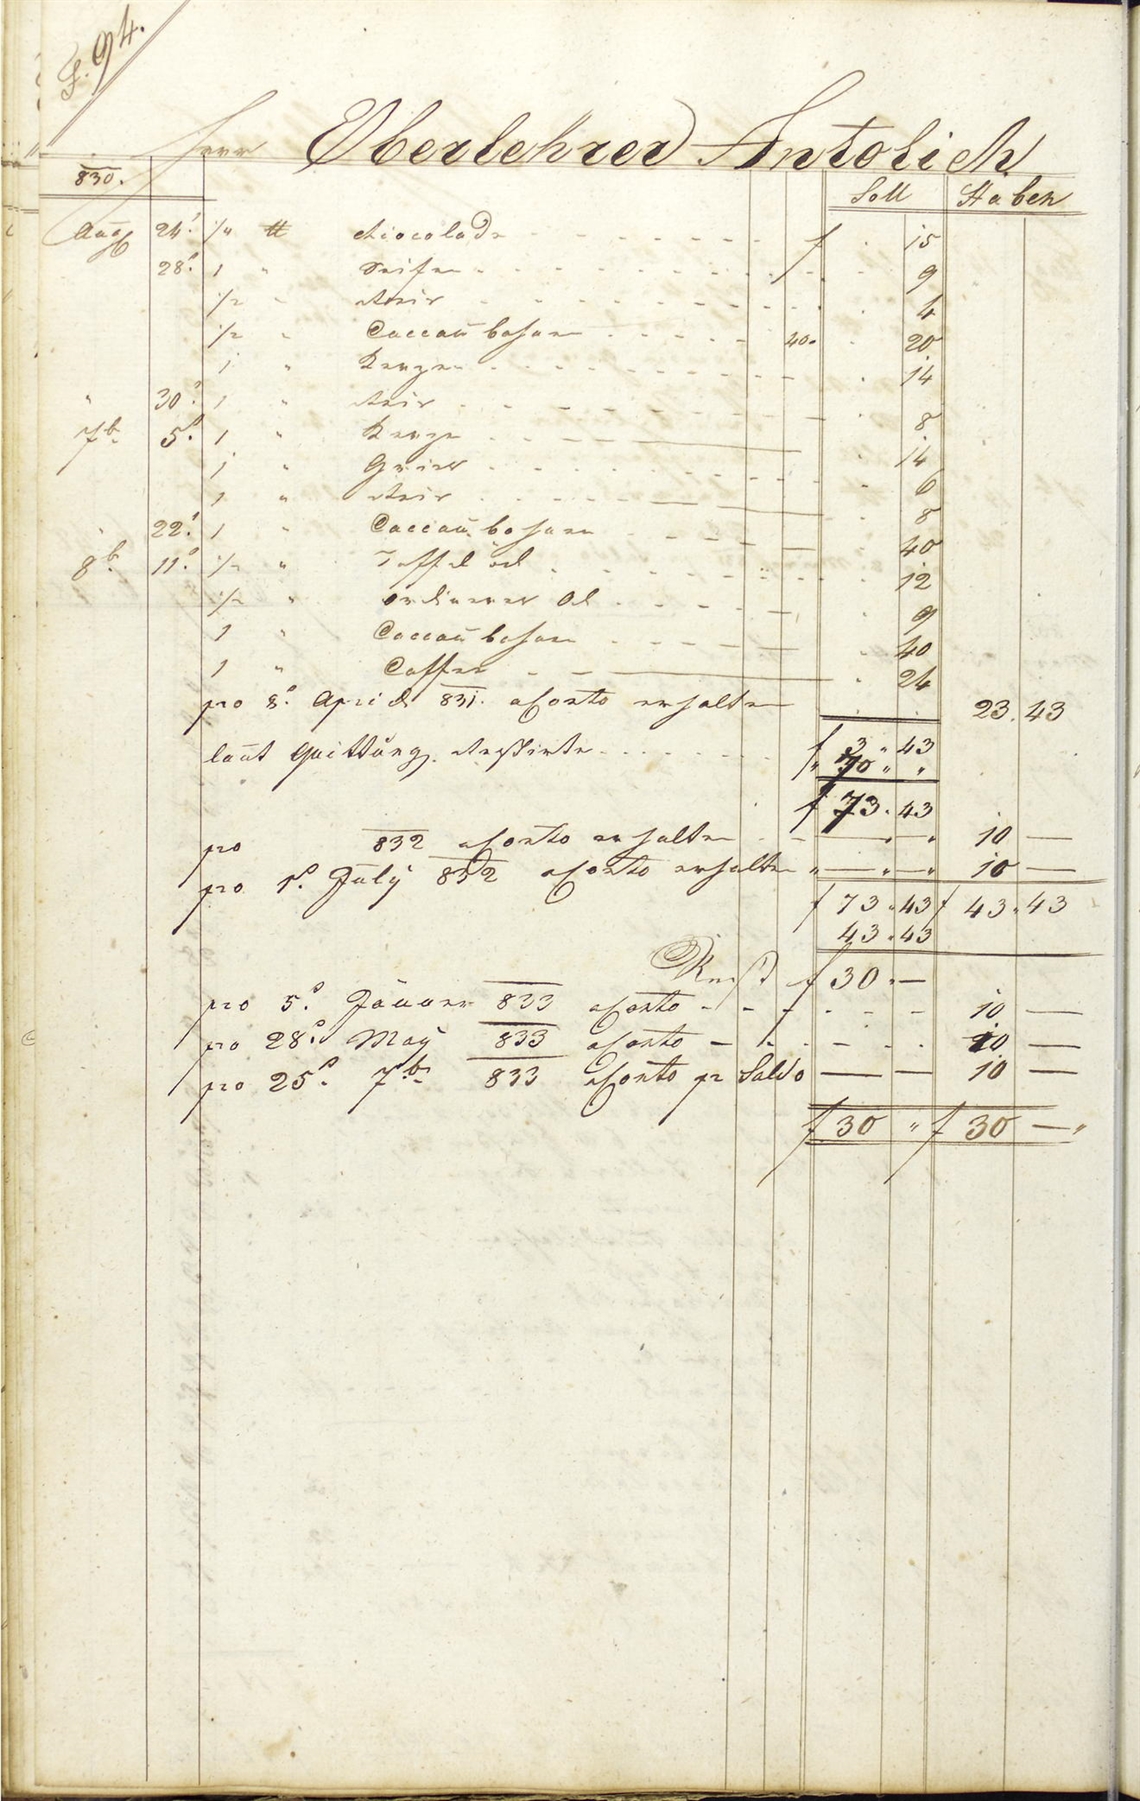 F. 94.
Herr Oberlehrer Antolich
830. Soll Haben
Aug 24. 1/4 ℔ chiocolade f 15
28. 1 " Seifen 9
1/2 " Reis 4
1/2 " Caccau bohnen 40. 20
1 " Kerzen 14
" 30. 1 " Reis 8
7b. 5. 1 " Kerze 14
1 " Gries 6
1 " Reis 8
" 22. 1 " Caccau bohnen 40
8b. 11. 1/2 " Taffel öel 12
1/2 " ordinerer Öl 9
1 " Caccau bohnen 40
1 " Caffee 24
pro 8. April 831. aConto erhalten 23. 43
laut Quittung Restirte f 3 " 43
" 70 " "
f 73. 43
pro 832 aConto erhalten — " — " 10 —
pro 1. July 832 aConto erhalten " — " — " 10 —
f 73 " 43 f 43 " 43
43 " 43
Rest f 30 " —
pro 5. Jänner 833 aConto 10 —
pro 28. May 833 aConto 10 —
pro 25. 7br 833 aConto pr Saldo — — 10 —
f 30 " f 30 — "